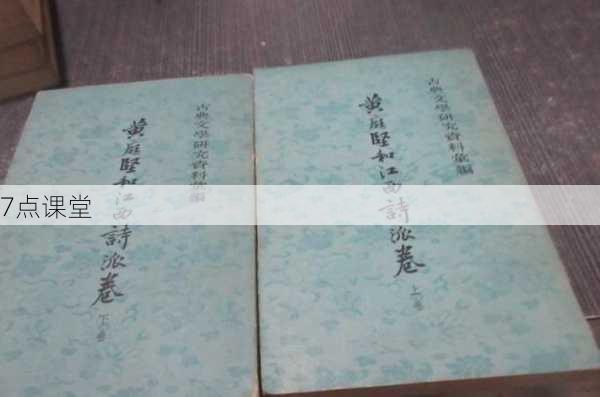 古典文學研究資料彙編
黄庭堅和江西詩派卷
下卷
古典文學研究資料彙編
黄庭堅和江西詩派卷
上卷
7点课堂